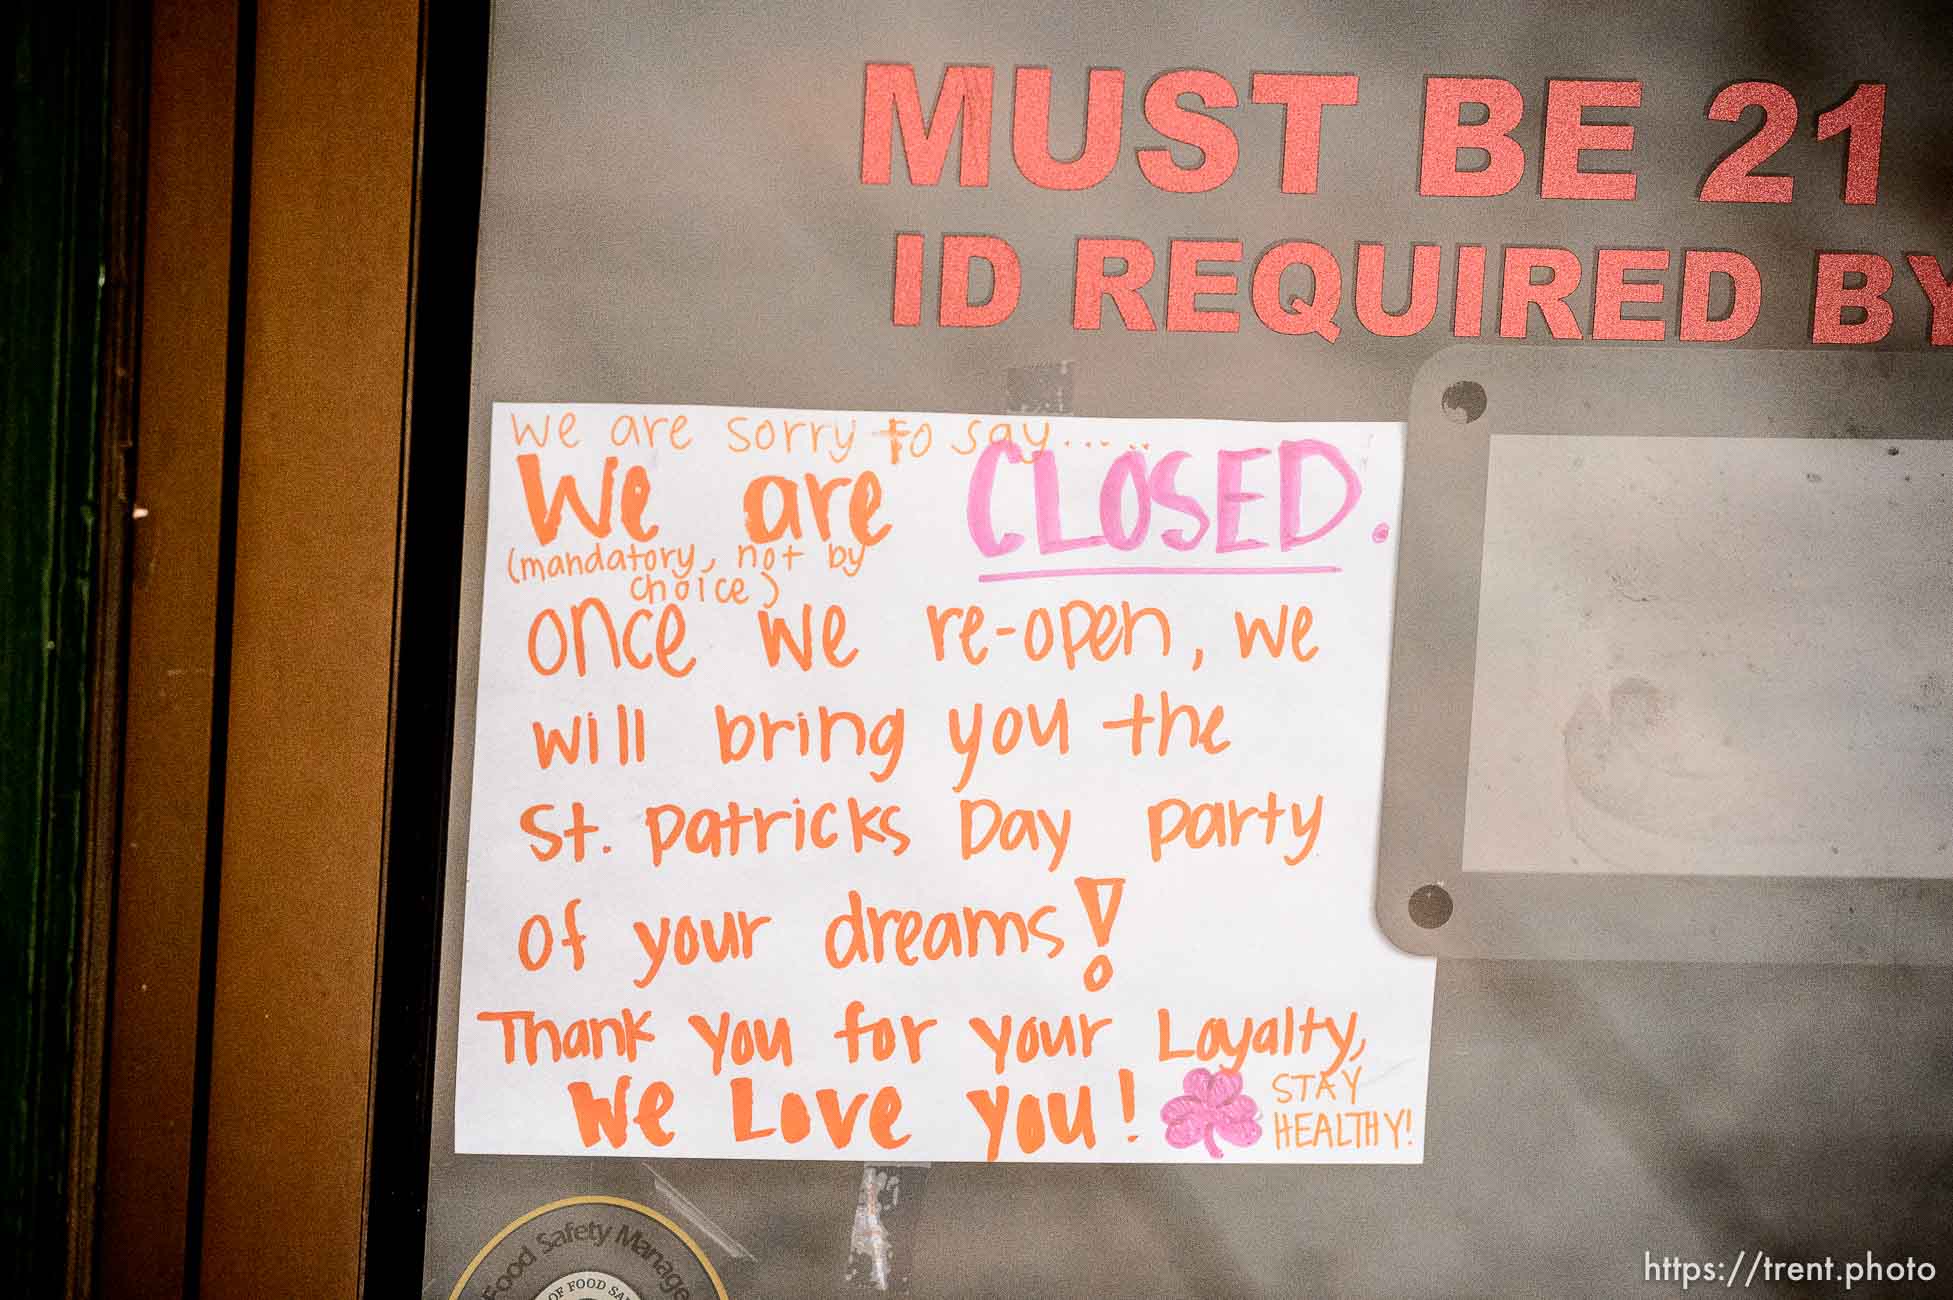 MUST BE 21
ID REQUIRED BY
We are sorry to say.....
We are CLOSED.
(mandatory, not by
choice)
once we re-open, we
will bring you the
St. Patricks Day Party
of your dreams!
Thank you for your Loyalty,
We Love you!
STAY
HEALTHY!
Food Safety Manage
OF FOOD SA
https://trent.photo